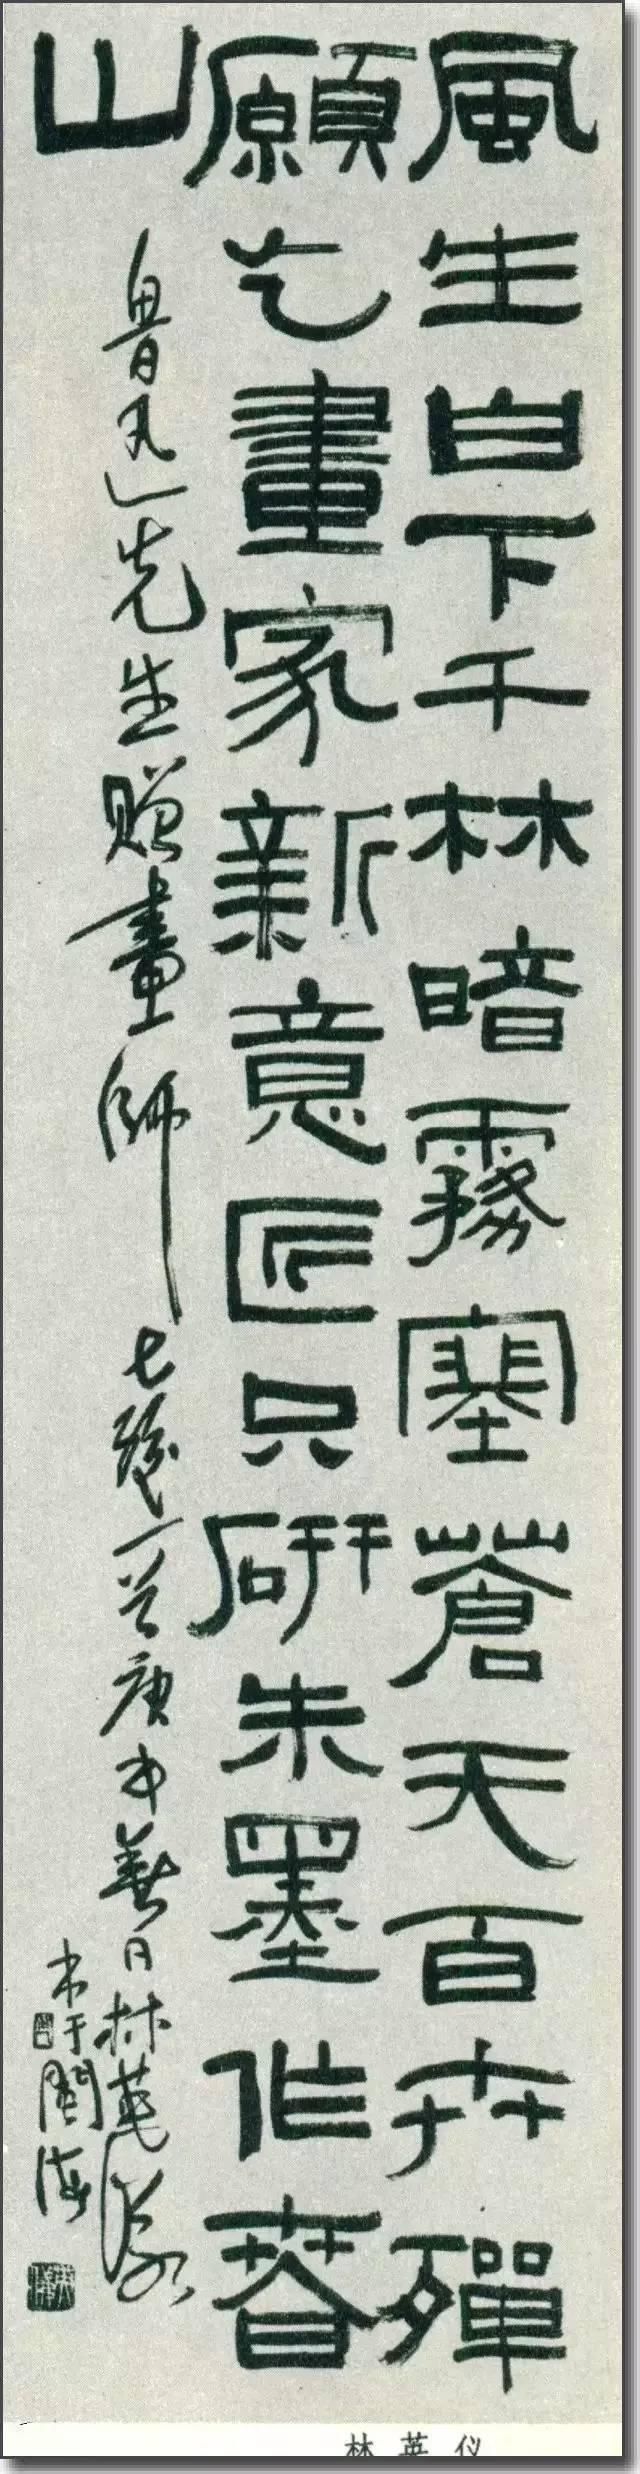 風生白下千林暗霧塞蒼天百卉殫
願乞畫家新意匠只研朱墨作春
山
魯迅先生贈畫師七绝一首庚申春日林英儀
书于閩海
林英仪